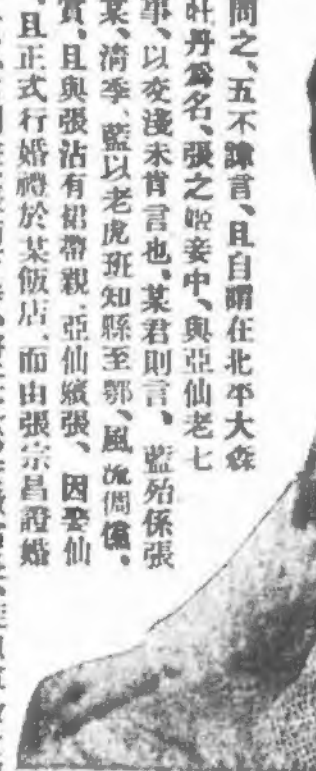 問之、五不諱言、且自謂在北平大森
牡丹爲名、張之姬妾中、與亞仙老七
事、以交淺未肯言也、某君則言、藍殆係張
某、清季、藍以老虎班知縣至鄂、風流倜儻、
賞、且與張沾有裙帶親、亞仙嬪張、因娶仙
且正式行婚禮於某飯店、而由張宗昌證婚